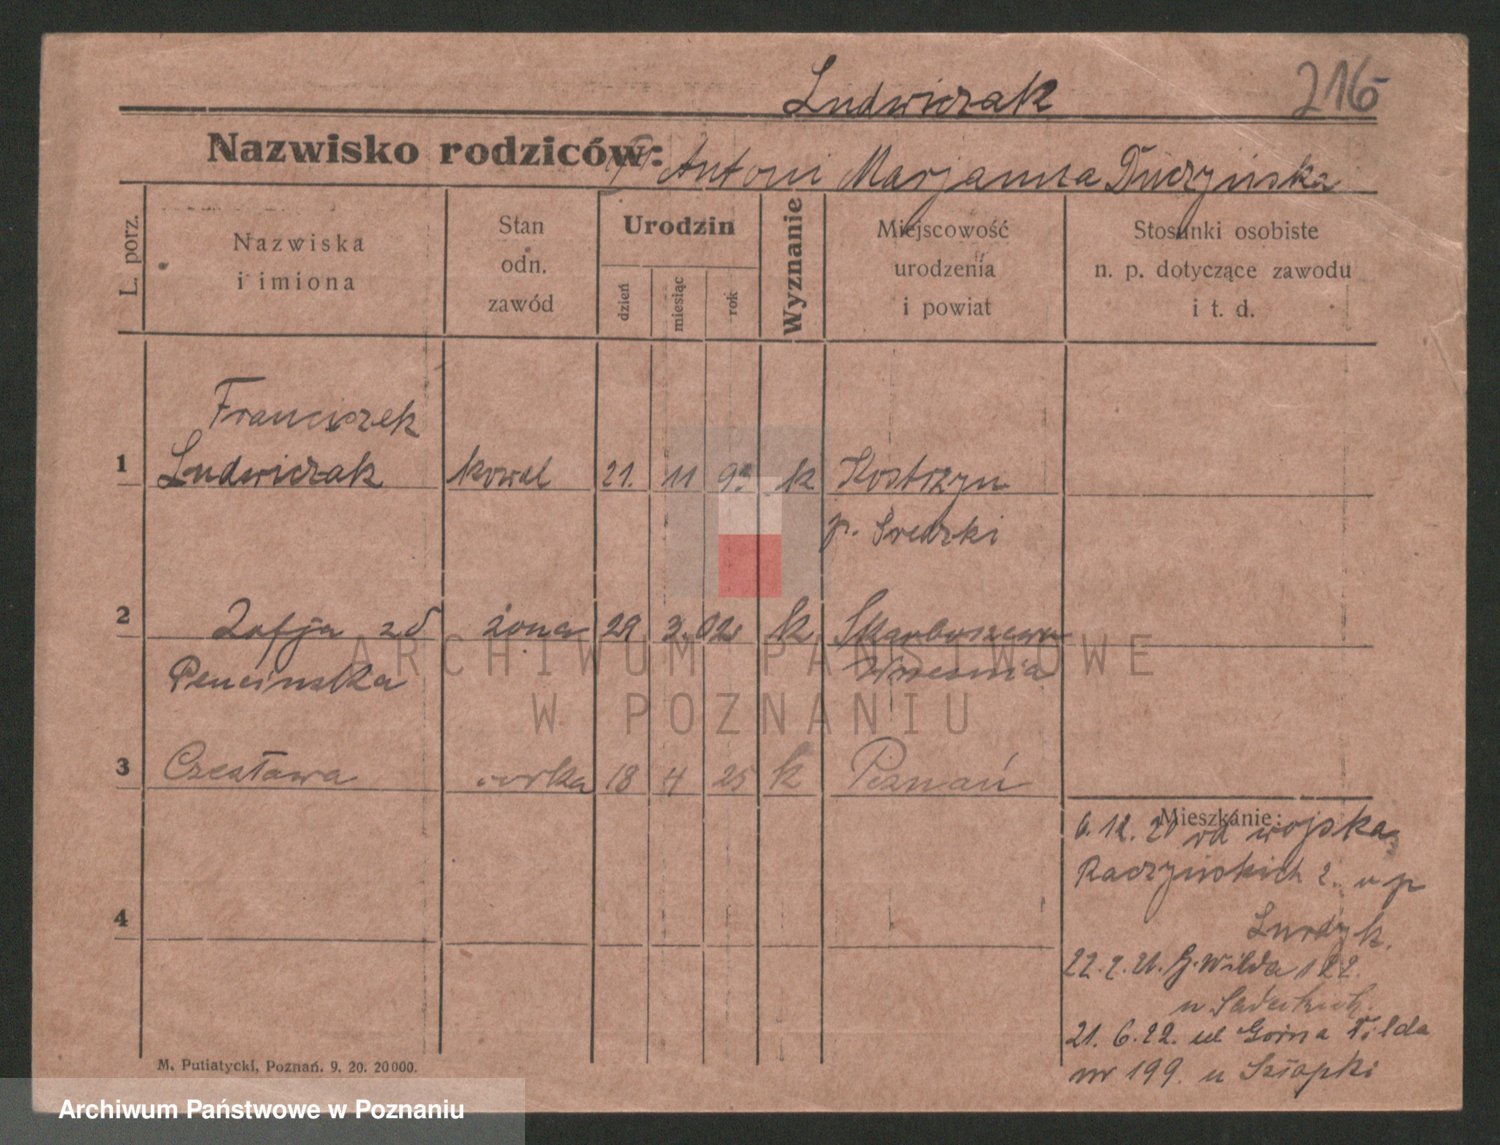 Ludwiczak
216
Nazwisko rodziców: Antoni Marjanna Tuczyńska
L. porz.
Nazwiska
i imiona
Stan
odn.
zawód
Urodzin
dzień
miesiąc
rok
Wyznanie
Miejscowość
urodzenia
i powiat
Stosunki osobiste
n. p. dotyczące zawodu
i t. d.
Franciszek
1 Ludwiczak kowal 21. 11 k Kostrzyn
p. Średzki
2 Zofja zd żona 29 3. 02 k Skarboszewo
Pencinska Wrzesnia
3 Czesława 18 4 25 k Poznań
Mieszkanie:
6. 12. 20 od wojska
Raczyńskich 2. u p
22. 2. 21. G. Wilda 122.
u
21. 6. 22. ul Górna Wilda
nr 199. u Szłapki
4
M. Putiatycki, Poznań. 9. 20. 20000.
ARCHIWUM PAŃSTWOWE
W POZNANIU
Archiwum Państwowe w Poznaniu